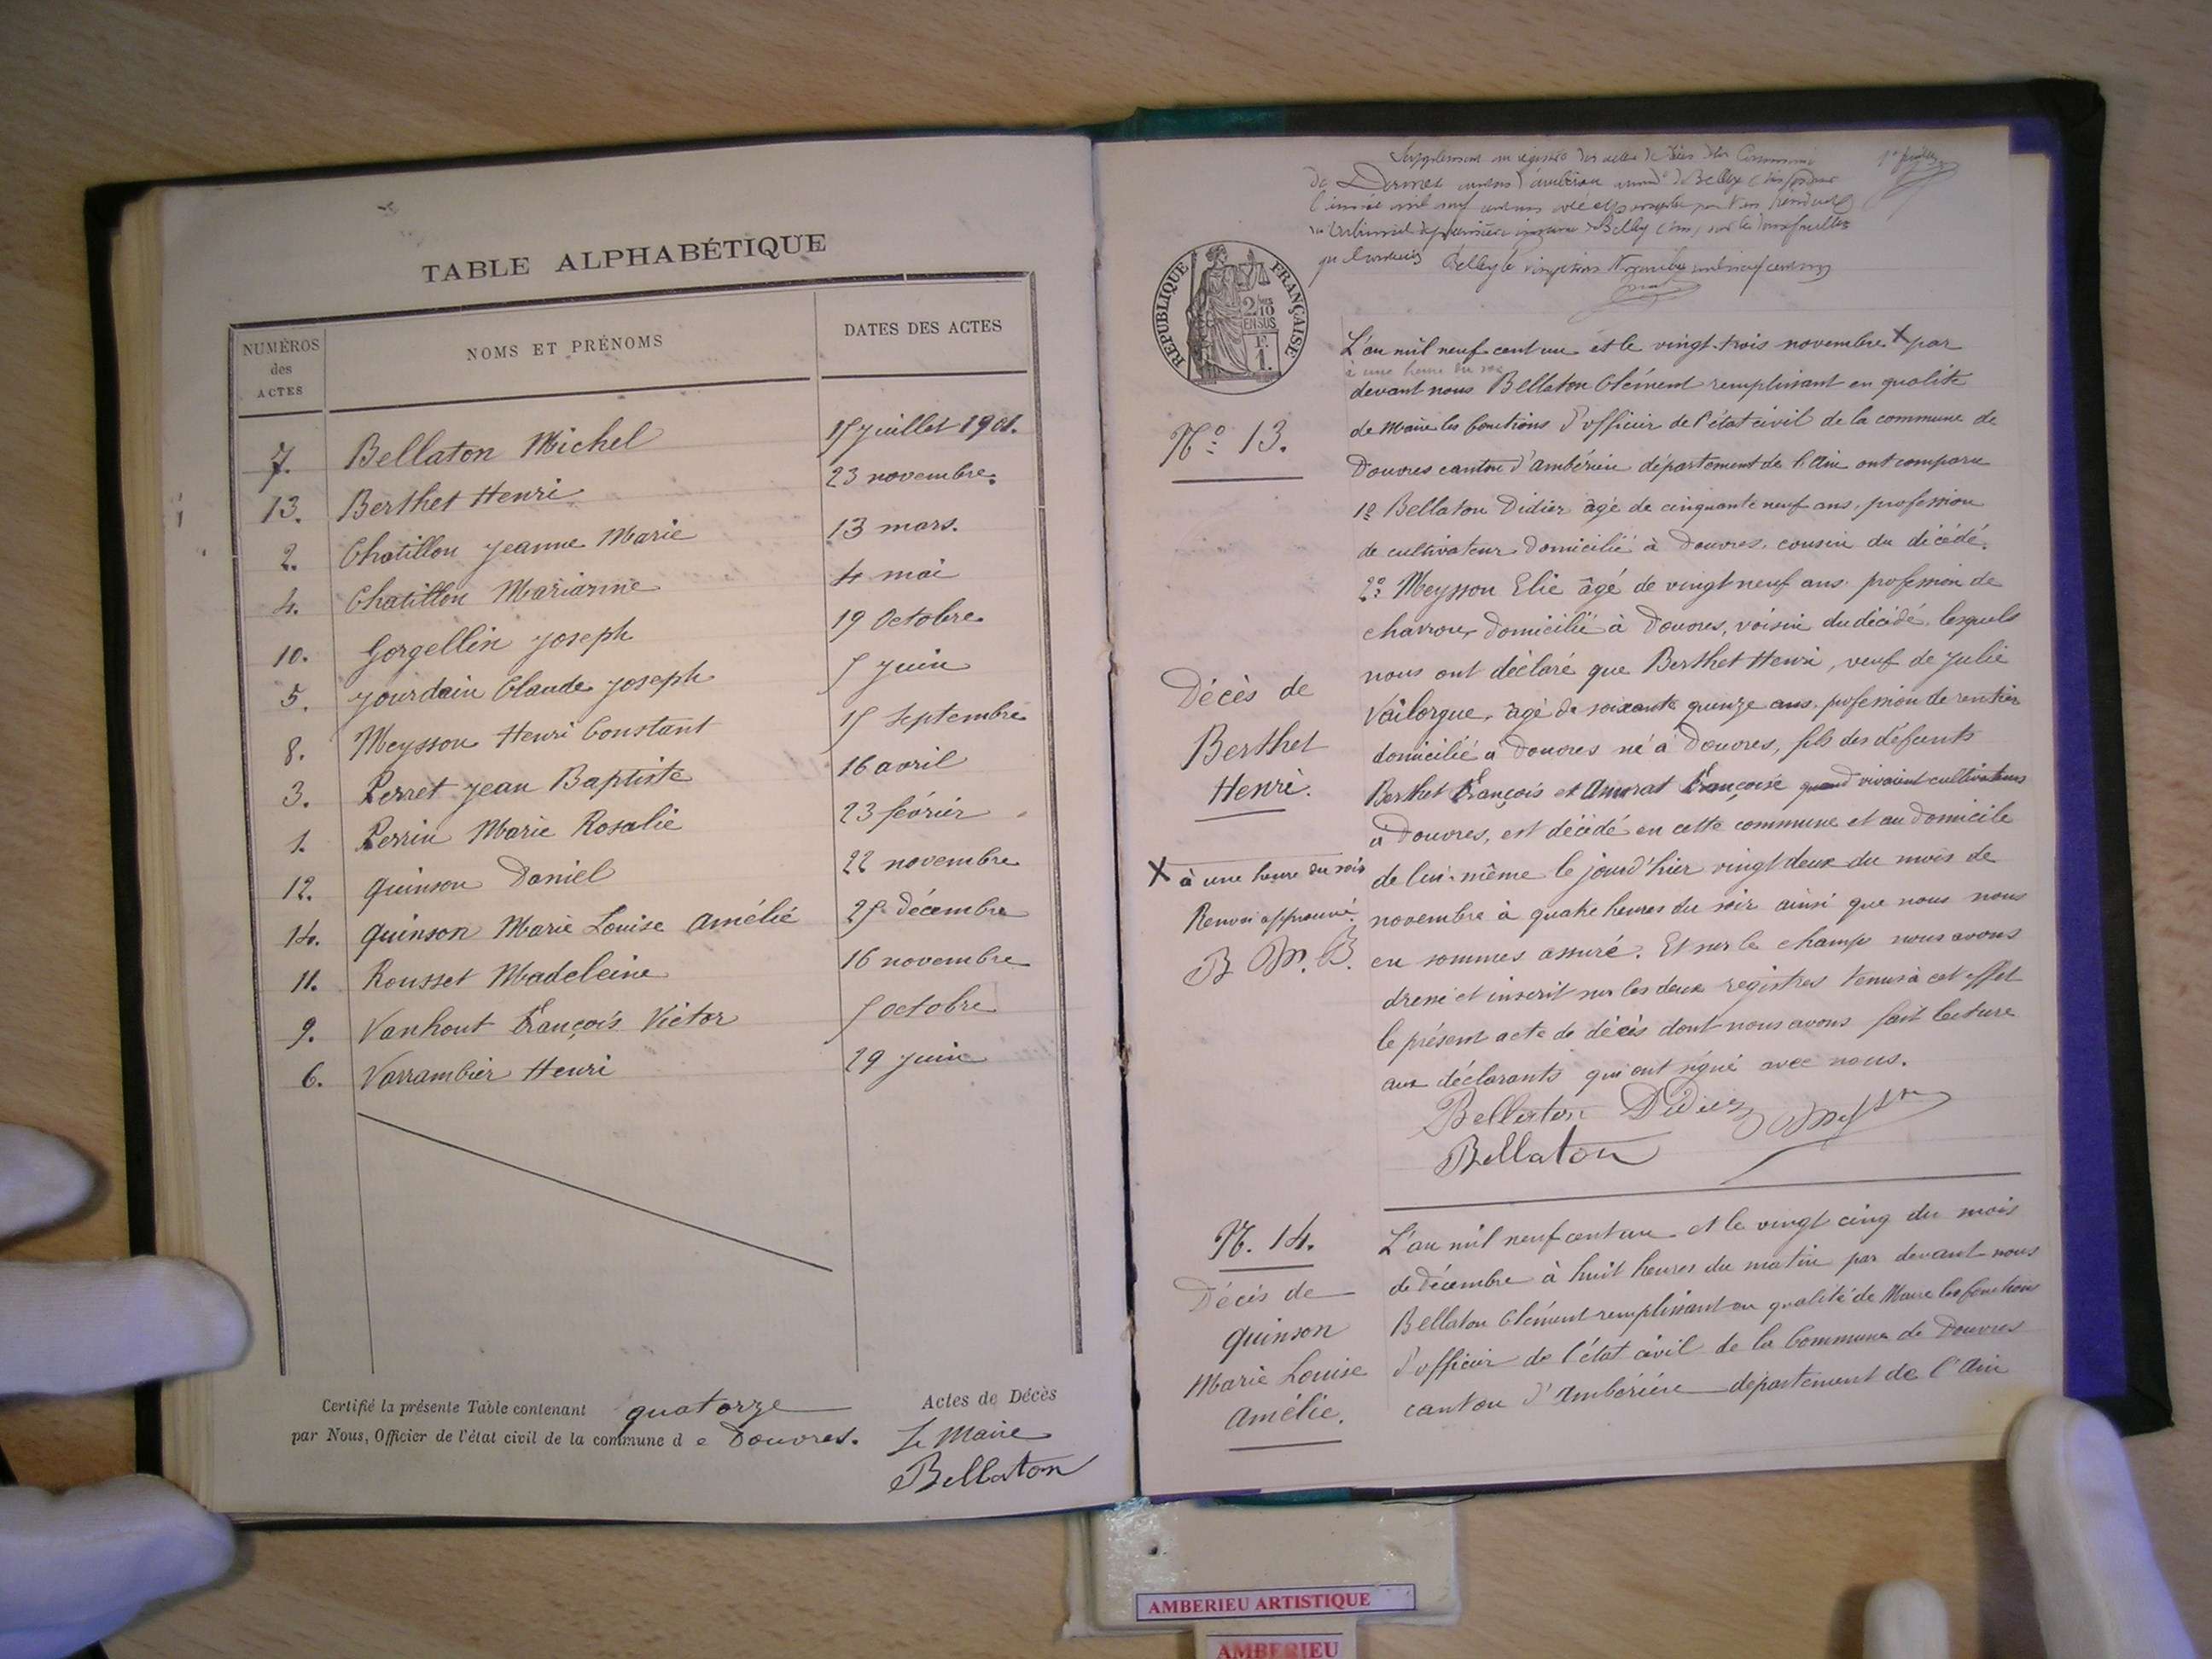 TABLE ALPHABÉTIQUE
NUMÉROS des ACTES
NOMS ET PRÉNOMS
DATES DES ACTES
7. Bellaton Michel 15 juillet 1901.
13. Berthet Henri 23 novembre.
2. Chatillon Jeanne Marie 13 mars.
4. Chatillon Marianne 4 mai
10. Gorgellin Joseph 19 Octobre
5. Jourdain Claude Joseph 5 Juin
8. Meysson Henri Constant 15 Septembre
3. Perret Jean Baptiste 16 avril
1. Perrin Marie Rosalie 23 février
12. Quinson Daniel 22 novembre
14. Quinson Marie Louise Amélié 25 décembre
11. Rousset Madeleine 16 novembre
9. Vanhout François Victor 5 octobre
6. Varrambier Henri 29 juin
Certifié la présente Table contenant quatorze Actes de Décès
par Nous, Officier de l'état civil de la commune d e Douvres. Le Maire
Bellaton
Supplément au registre des actes de décès de la Commune
1er feuillet
RÉPUBLIQUE FRANÇAISE
2/10 EN SUS
F. 1.
No. 13.
L'an mil neuf cent un et le vingt-trois novembre X par
à une heure du soir
devant nous Bellaton Clément remplissant en qualité
de Maire les fonctions d'officier de l'état civil de la commune de
Douvres canton d'Ambérieu département de l'Ain ont comparu
1o Bellaton Didier âgé de cinquante neuf ans, profession
de cultivateur domicilié à Douvres, cousin du décédé.
2o Meysson Elie âgé de vingt neuf ans profession de
charron domicilié à Douvres, voisin du décédé, lesquels
nous ont déclaré que Berthet Henri, veuf de Julie
Vailorgue, âgé de soixante quinze ans, profession de rentier
domicilié à Douvres né à Douvres, fils des défunts
Berthet François et Amurat Françoise quand vivaient cultivateurs
à Douvres, est décédé en cette commune et au domicile
de lui-même le jour d'hier vingt deux du mois de
novembre à quatre heures du soir ainsi que nous nous
en sommes assuré. Et sur le champ nous avons
dressé et inscrit sur les deux registres tenus à cet effet
le présent acte de décès dont nous avons fait lecture
aux déclarants qui ont signé avec nous.
Décès de
Berthet
Henri.
X à une heure du soir
Renvoi approuvé.
B. M. B.
Bellaton Didier
Bellaton
N. 14.
Décès de
Quinson
Marie Louise
Amélie.
L'an mil neuf cent un et le vingt cinq du mois
de décembre à huit heures du matin par devant nous
Bellaton Clément remplissant en qualité de Maire les fonctions
d'officier de l'état civil de la Commune de Douvres
canton d'Ambérieu département de l'Ain
AMBERIEU ARTISTIQUE
AMBERIEU